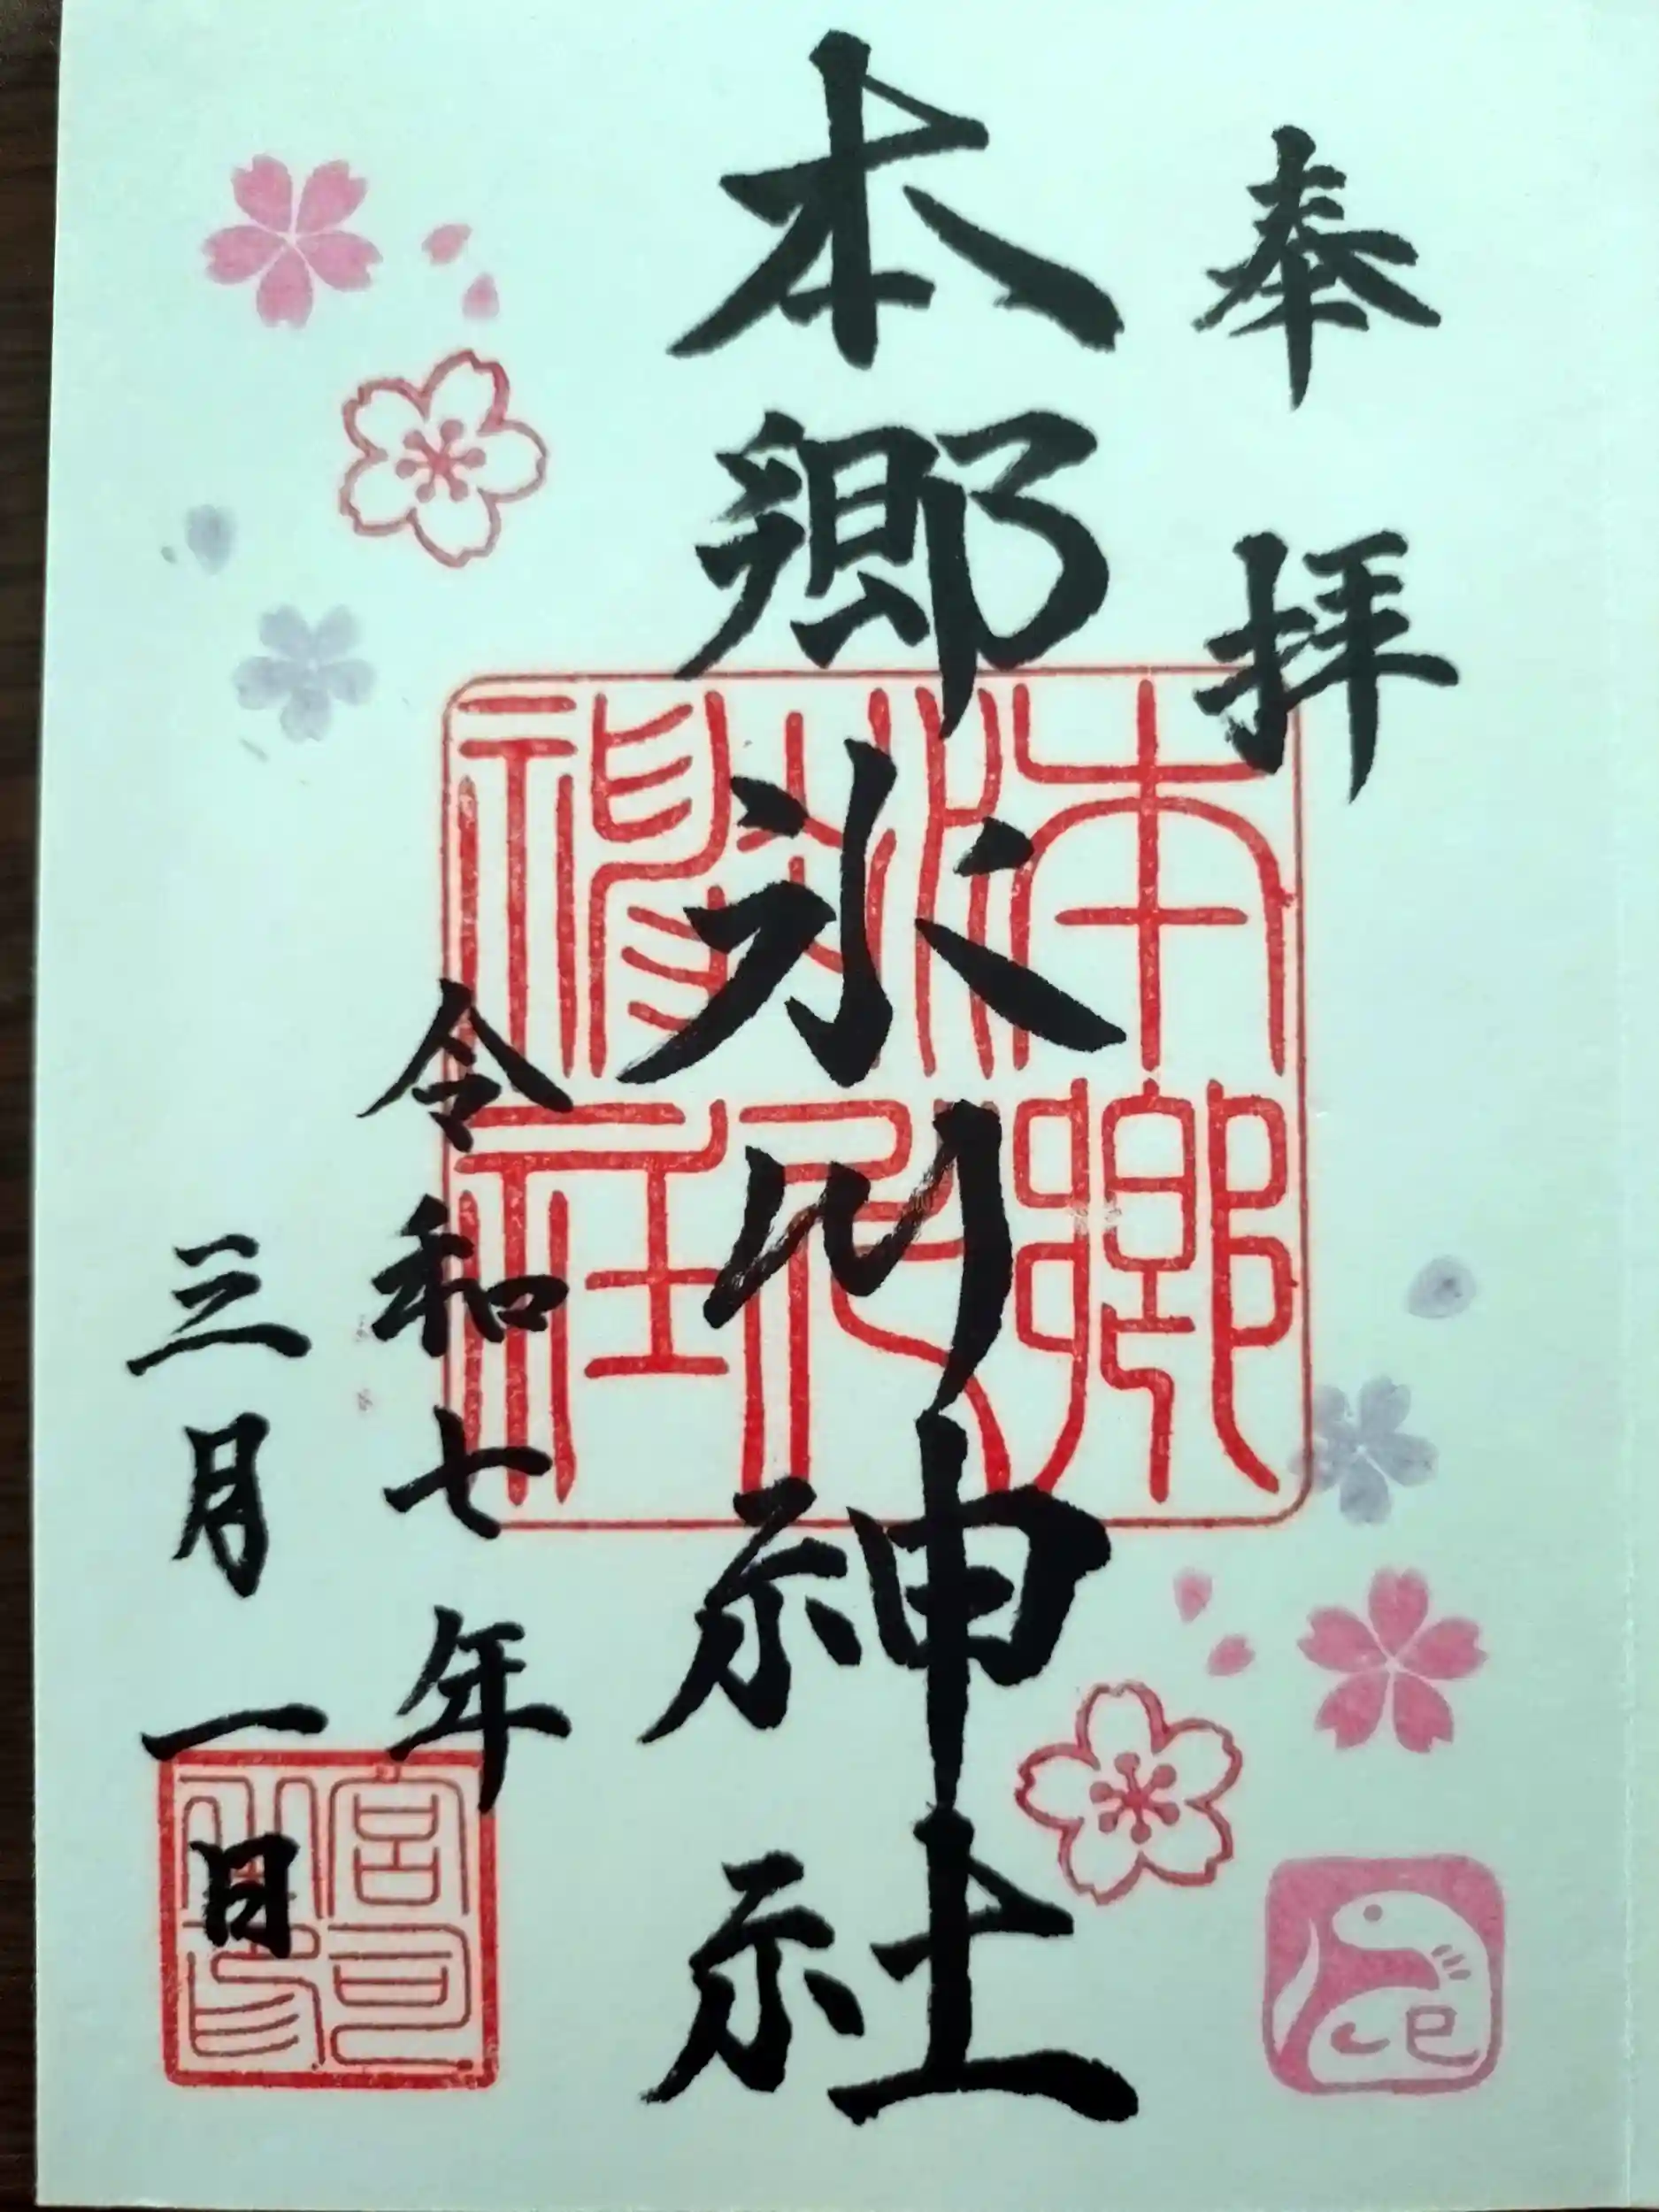 奉拝
本郷氷川神社
令和七年
三月一日
本郷
氷川
神社
巳